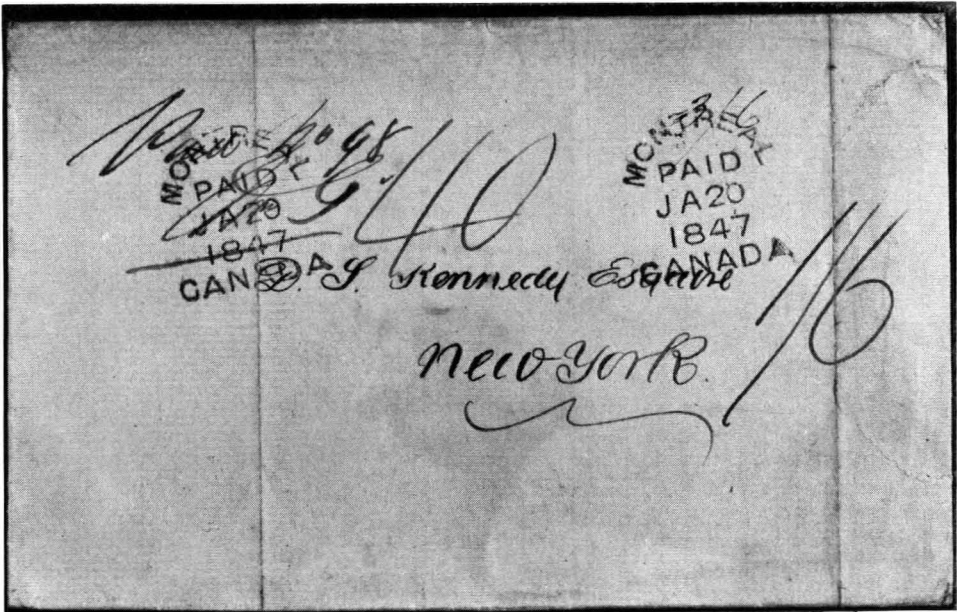 MONTREAL
PAID
JA 20
1847
CANADA
MONTREAL
PAID
JA 20
1847
CANADA
40
S. Kennedy Esquire
1/6
New York.